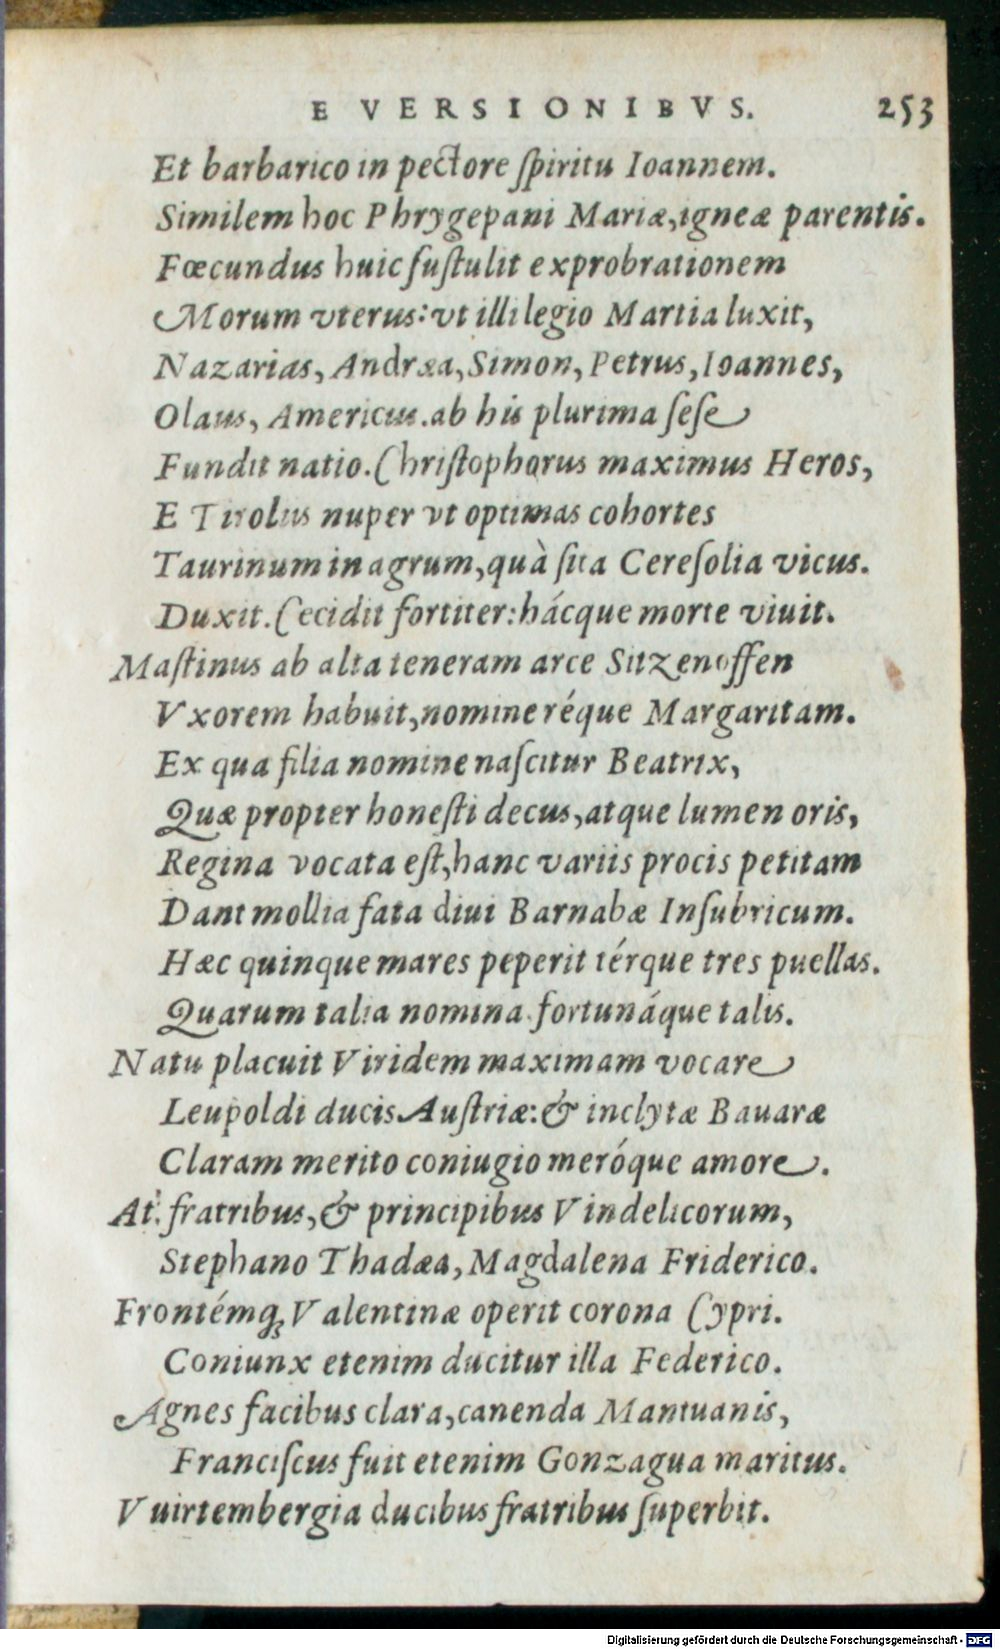 E VERSIONIBVS. 253
Et barbarico in pectore ſpiritu Ioannem.
Similem hoc Phrygepani Mariæ, igneæ parentis.
Fœcundus huic ſuſtulit exprobrationem
Morum vterus: vt illi legio Martia luxit,
Nazarias, Andræa, Simon, Petrus, Ioannes,
Olaus, Americus. ab his plurima ſeſe
Fundit natio. Chriſtophorus maximus Heros,
E Tirolus nuper vt optimas cohortes
Taurinum in agrum, quà ſita Cereſolia vicus.
Duxit. Cecidit fortiter: hácque morte viuit.
Maſtinus ab alta teneram arce Sitzenoffen
Vxorem habuit, nomine réque Margaritam.
Ex qua filia nomine naſcitur Beatrix,
Quæ propter honeſti decus, atque lumen oris,
Regina vocata eſt, hanc variis procis petitam
Dant mollia fata diui Barnabæ Inſubricum.
Hæc quinque mares peperit térque tres puellas.
Quarum talia nomina fortunáque talis.
Natu placuit Viridem maximam vocare
Leupoldi ducis Auſtriæ: & inclytæ Bauaræ
Claram merito coniugio meróque amore.
At fratribus, & principibus Vindelicorum,
Stephano Thadæa, Magdalena Friderico.
Frontémq; Valentinæ operit corona Cypri.
Coniunx etenim ducitur illa Federico.
Agnes facibus clara, canenda Mantuanis,
Franciſcus fuit etenim Gonzagua maritus.
Vuirtembergia ducibus fratribus ſuperbit.
Digitalisierung gefördert durch die Deutsche Forschungsgemeinschaft - DFG